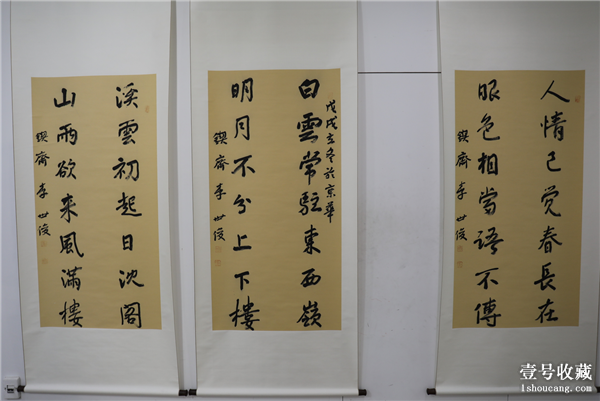 人情已觉春長在
眼色相當語不傳
鍥齋李世俊
白雲常駐東西嶺
戊戌立冬於京華
明月不分上下樓
鍥齋李世俊
溪雲初起日沈阁
山雨欲来風滿樓
鍥齋李世俊
壹号收藏
1shoucang.com